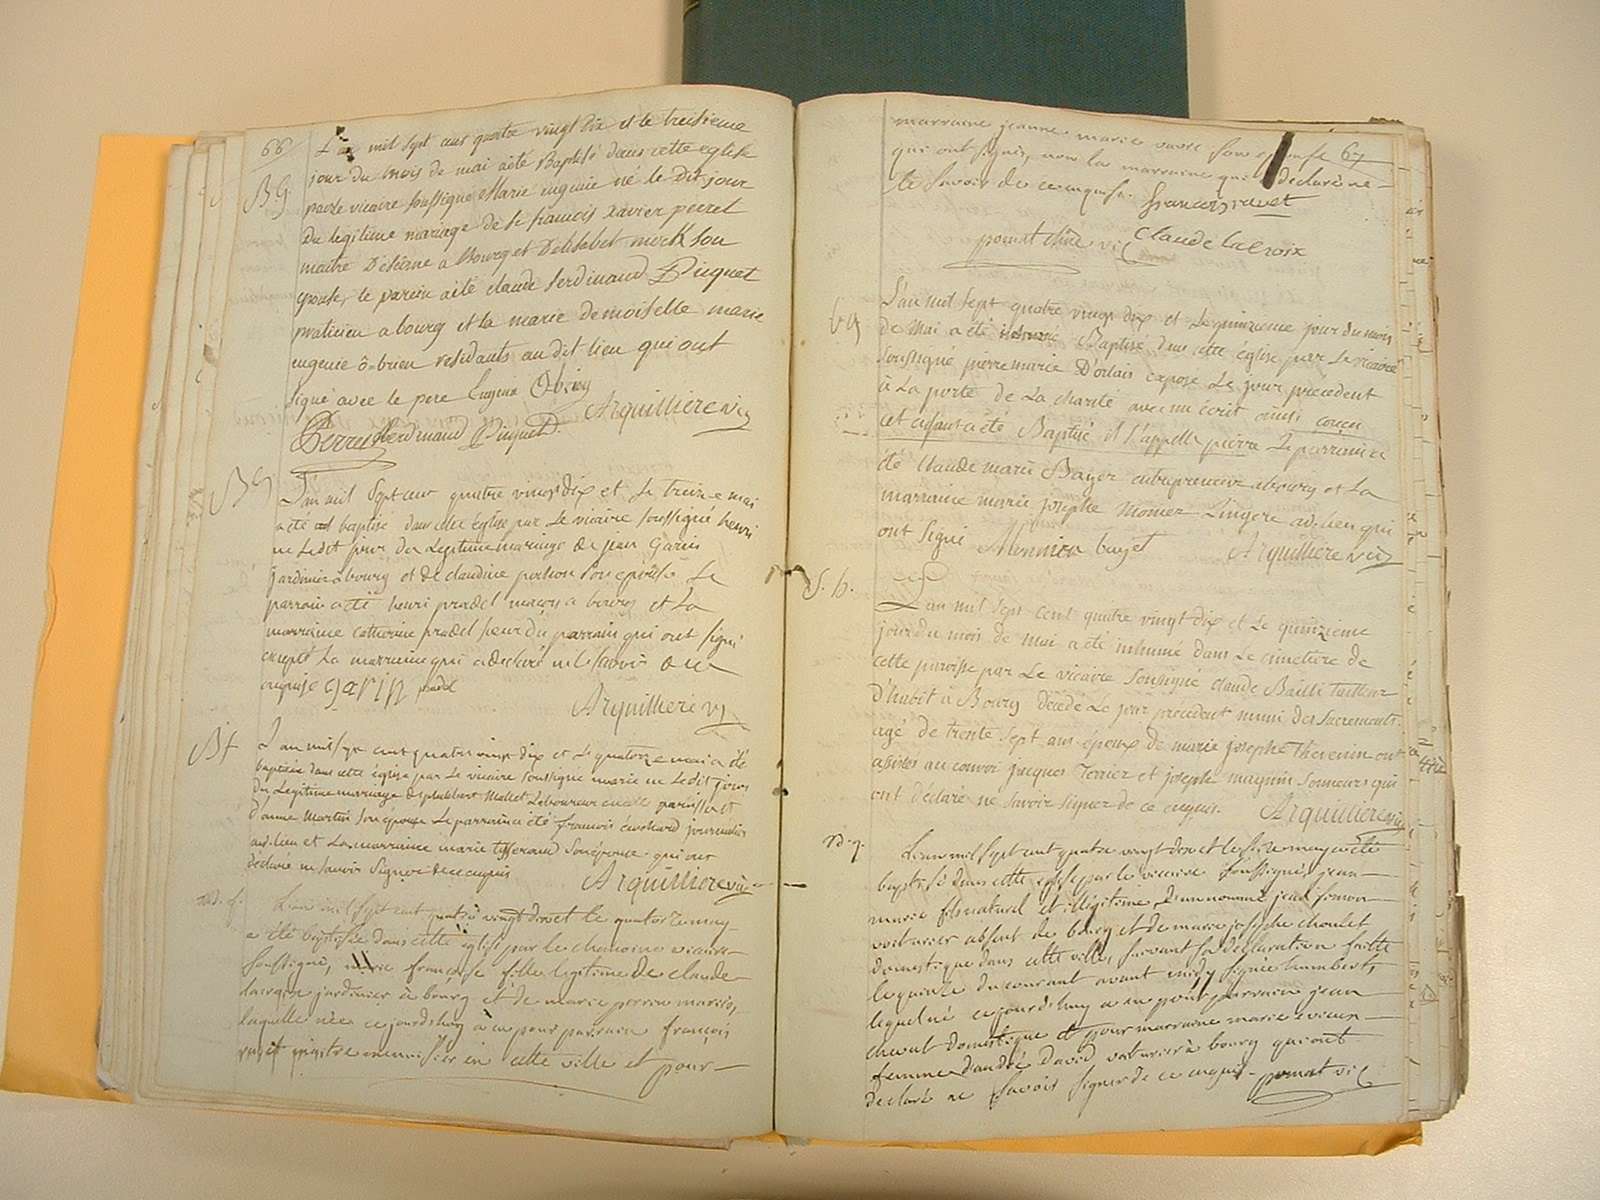 66
L'an mil sept cens quatre vingt dix et le treisieme
jour du mois de mai a été Baptisé dans cette eglise
par le vicaire soussigné Marie eugenie né le Dit jour
Du legitime mariage de Sr francois xavier perret
maitre D'Ecriture a Bourg et D'elisabet mock son
epouse, le parein a été claude ferdinand Piquet
praticien a bourg et la marie demoiselle marie
eugenie ô-brien residants au dit lieu qui ont
signé avec le pere Eugenie Obrien
Arquilliere vic
Perret ferdinand Piquet
B G
L'an mil sept cent quatre vingt dix et le treize mai
a été baptisé dans cette église par le vicaire soussigné henri
né ledit jour du legitime mariage de jean Garin
jardinier à bourg et de claudine son épouse Le
parrain a été henri pradel maçon a bourg et La
marraine catherine pradel soeur du parrain qui ont signé
excepté La marraine qui a declaré ne le savoir de ce
enquise garin pradel
Arquilliere vic
B f
L'an mil sept cent quatre vingt dix et le quatorze mai a été
baptisée dans cette église par Le vicaire soussigné marie née Ledit jour
Du Legitime mariage de philibert Mallet Laboureur en cette paroisse et
d'anne Martin son épouse Le parrain a été francois journalier
aud. lieu et La marraine marie tisserand son épouse qui ont
déclaré ne savoir Signer de ce enquis
Arquilliere vic
L'an mil sept cent quatre vingt dix et le quatorze may
a été baptisée dans cette eglise par le chanoine vicaire
soussigné, marie françoise fille legitime de claude
lacroix jardinier à bourg et de marie perrine
laquelle née ce jourd'huy a eu pour parrain françois
ravet maitre menuisier en cette ville et pour
marraine jeanne marie son epouse 67
qui ont signé, non la marraine qui a declaré ne
le savoir de ce enquise. francois ravet
claude lacroix
vic
b g
L'an mil sept quatre vingt dix et Le quinzieme jour du mois
de Mai a été Baptisé dans cette église par Le vicaire
soussigné pierre marie D'orlais exposé Le jour precedent
à La porte de La charité avec un écrit ainsi conçu
cet enfant a été Baptisé il s'appelle pierre Le parrain a
été Claude marie Bayet entrepreneur a bourg et La
marraine marie josephe Monier Lingere aud. lieu qui
ont signé Monnier bayet Arquilliere vic
S. h.
L'an mil sept cent quatre vingt dix et Le quinzieme
jour du mois de mai a été inhumé dans Le cimetiere de
cette paroisse par Le vicaire soussigné claude Bailli tailleur
D'habit à Bourg décédé Le jour precedent muni des sacrements
agé de trente sept ans époux de marie josephe Thevenin ont
assistés au convoi jacques Terrier et joseph magnin sonneurs qui
ont déclaré ne savoir signer de ce enquis. Arquilliere vic
L'an mil sept cent quatre vingt dix et le seize may a été
baptisé dans cette eglise par le vicaire soussigné, jean
marie fils naturel et illégitime d'un nommé jean simon
voiturier absent de bourg et de marie josephe choulet
domestique dans cette ville, suivant sa déclaration faitte
le quinze du courant avant midy signée humbert,
lequel né ce jourd'huy a eu pour parrain jean
domestique et pour marraine marie
femme d'andré david voiturier à bourg qui ont
declaré ne savoir signer de ce enquis vic